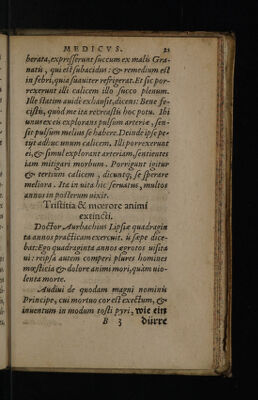 MEDICVS. 21
berata, expresserunt succum ex malis Gra-
natis, qui est subacidus: & remedium est
in febri, quia suauiter refrigerat. Et sic por-
rexerunt illi calicem illo succo plenum.
Ille statim auidè exhausit, dicens: Bene fe-
cistis, quòd me ita recreastis hoc potu. Ibi
unus ex eis explorans pulsum arteriæ, sen-
sit pulsum melius se habere. Deinde ipse pe-
tijt adhuc unum calicem. Illi porrexerunt
ei, & simul explorant arteriam, sentientes
iam mitigari morbum. Porrigunt igitur
& tertium calicem, dicuntq; se sperare
meliora. Ita in uita hic seruatus, multos
annos in posterum uixit.
Tristitia & mœrore animi
extincti.
Doctor Aurbachius Lipsiæ quadragin
ta annos practicam exercuit. is sæpe dice-
bat: Ego quadraginta annos ægrotos uisita
ui: reipsa autem comperi plures homines
mœsticia & dolore animi mori, quàm uio-
lenta morte.
Audiui de quodam magni nominis
Principe, cui mortuo cor est exectum, &
inuentum in modum tosti pyri, wie ein
B 3 dürre